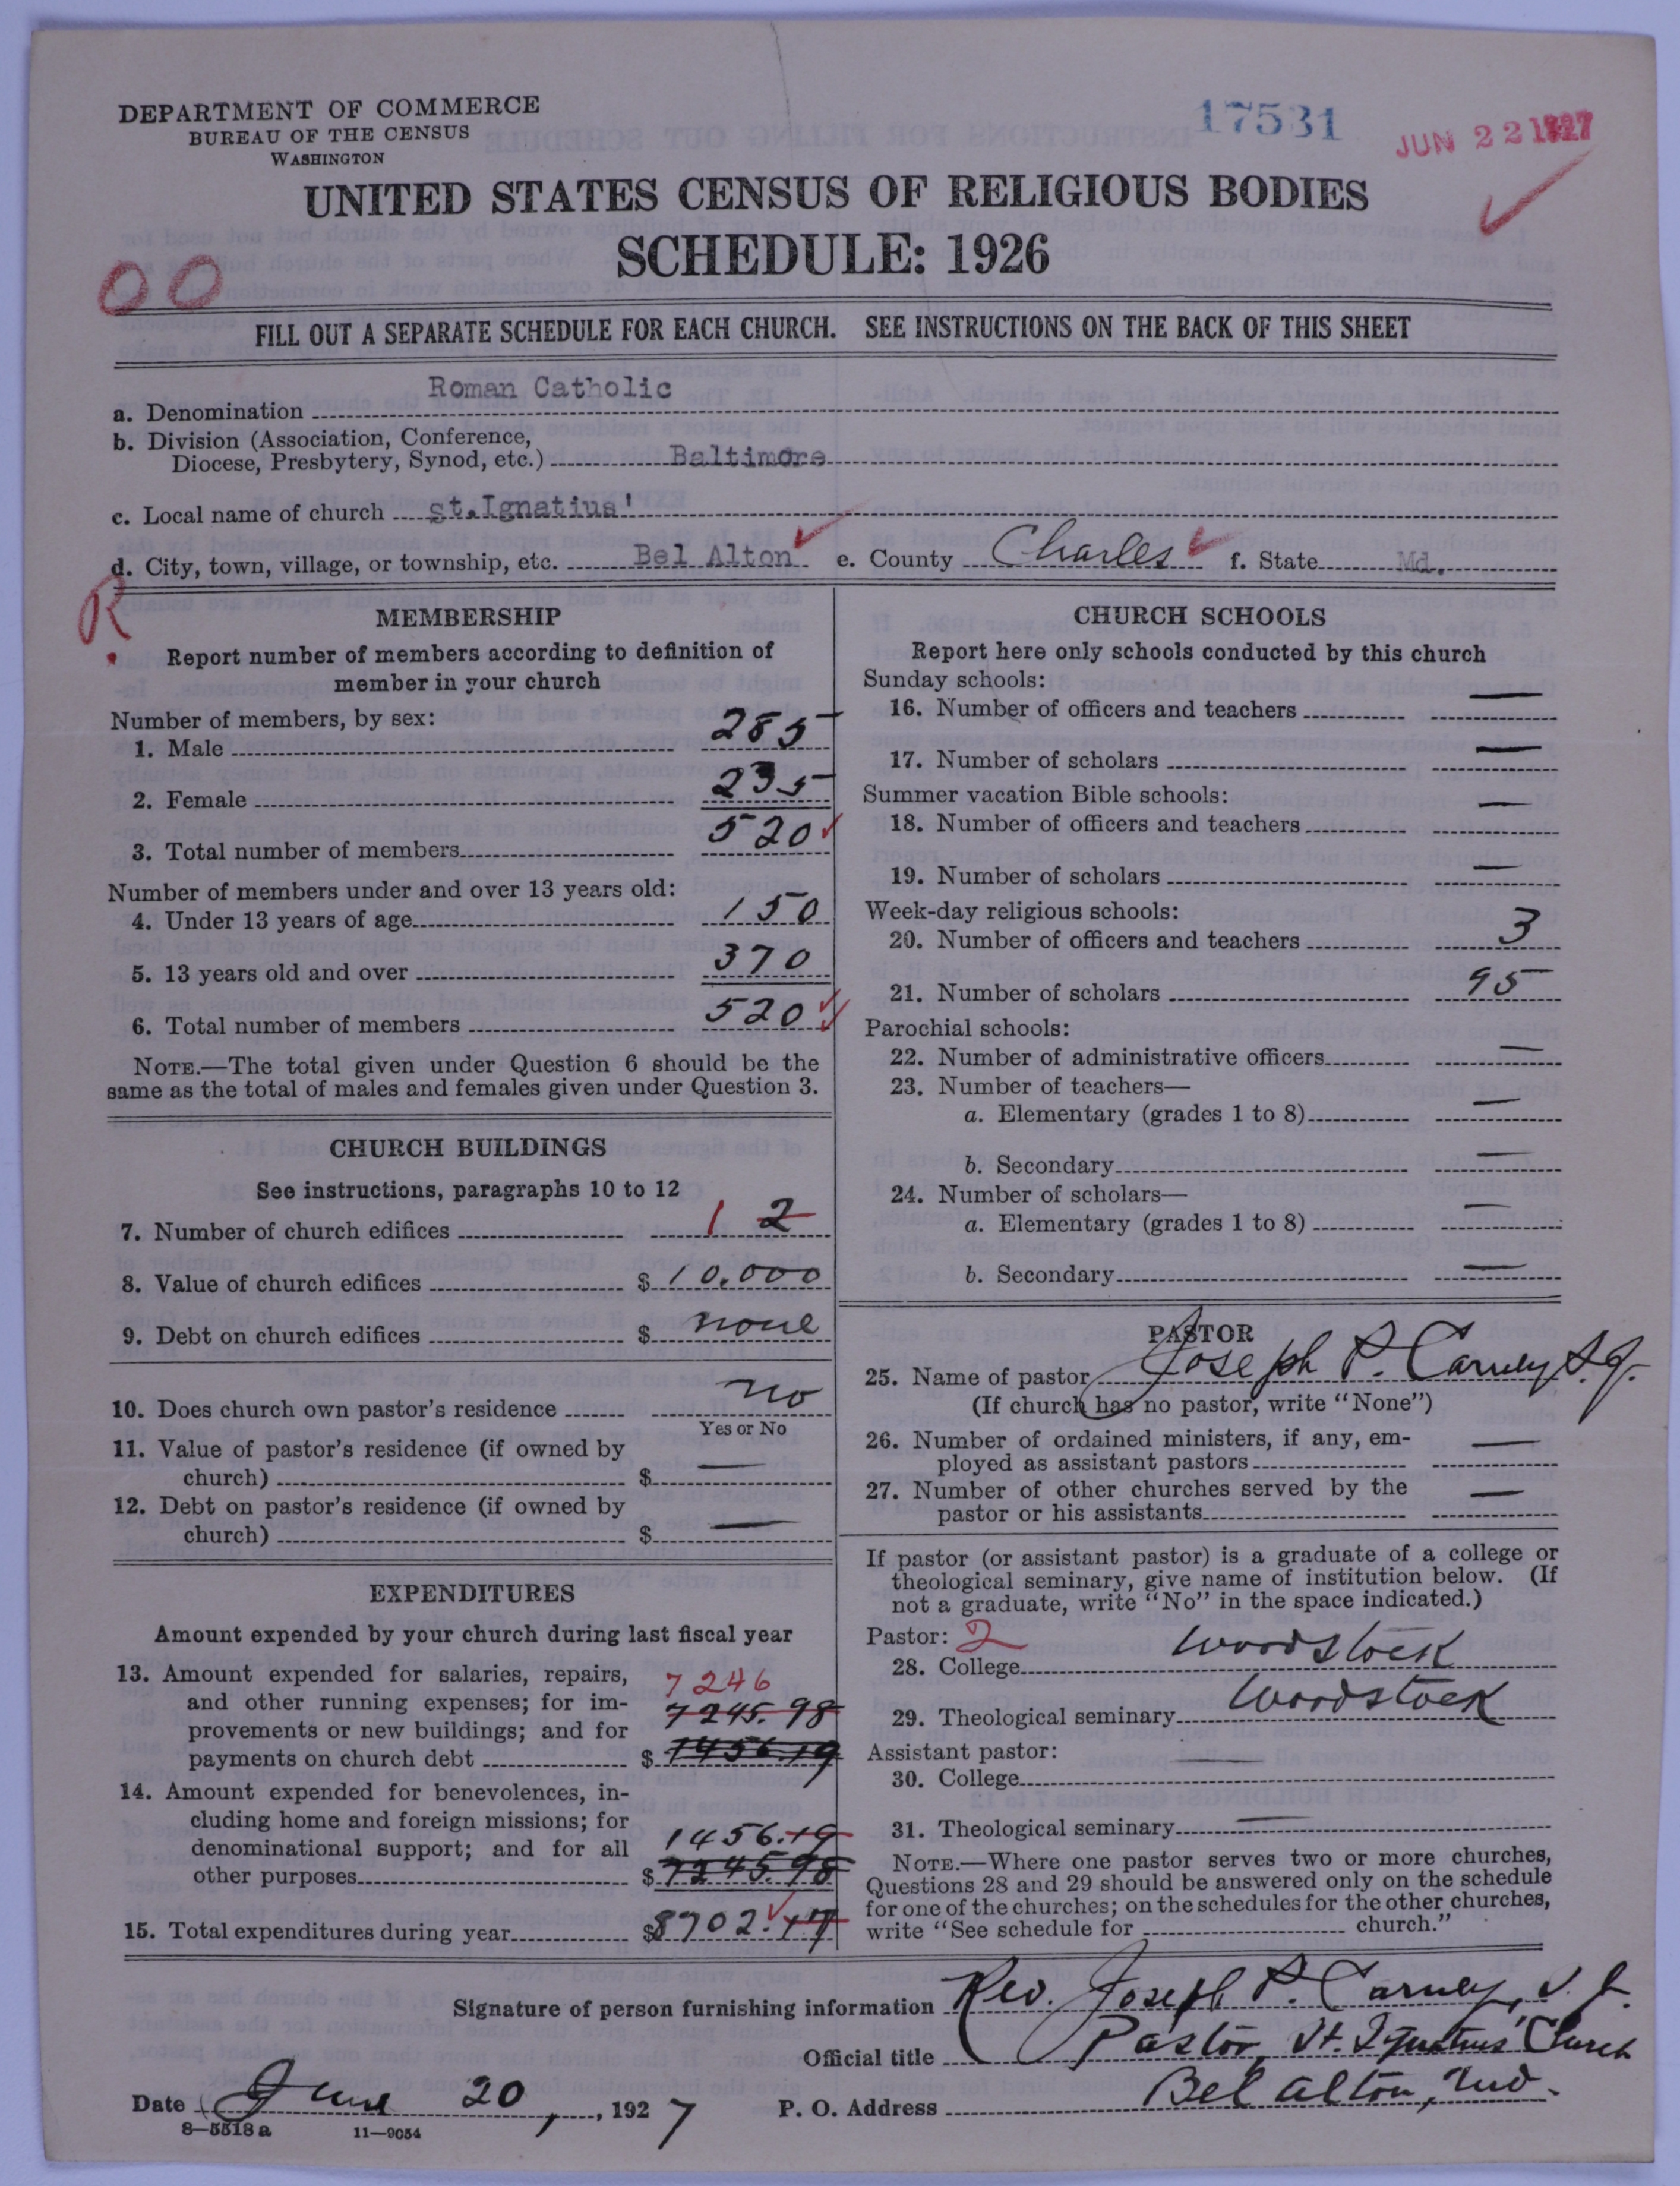 DEPARTMENT OF COMMERCE
BUREAU OF THE CENSUS
WASHINGTON
17531
JUN 22 1927
UNITED STATES CENSUS OF RELIGIOUS BODIES
SCHEDULE: 1926
00
FILL OUT A SEPARATE SCHEDULE FOR EACH CHURCH. SEE INSTRUCTIONS ON THE BACK OF THIS SHEET
a. Denomination Roman Catholic
b. Division (Association, Conference,
Diocese, Presbytery, Synod, etc.) Baltimore
c. Local name of church St.Ignatius'
d. City, town, village, or township, etc. Bel Alton e. County Charles f. State Md.
R.
MEMBERSHIP
Report number of members according to definition of
member in your church
Number of members, by sex:
1. Male 285
2. Female 235
3. Total number of members 520
Number of members under and over 13 years old:
4. Under 13 years of age 150
5. 13 years old and over 370
6. Total number of members 520
NOTE.—The total given under Question 6 should be the
same as the total of males and females given under Question 3.
CHURCH BUILDINGS
See instructions, paragraphs 10 to 12
7. Number of church edifices 1 2
8. Value of church edifices $ 10,000
9. Debt on church edifices $ none
10. Does church own pastor's residence no
Yes or No
11. Value of pastor's residence (if owned by
church) $ —
12. Debt on pastor's residence (if owned by
church) $ —
EXPENDITURES
Amount expended by your church during last fiscal year
13. Amount expended for salaries, repairs, 7246
and other running expenses; for im-
provements or new buildings; and for 7245.98
payments on church debt $ 1456.19
14. Amount expended for benevolences, in-
cluding home and foreign missions; for
denominational support; and for all 1456.19
other purposes $ 7245.98
15. Total expenditures during year $8702.17
CHURCH SCHOOLS
Report here only schools conducted by this church
Sunday schools:
16. Number of officers and teachers —
17. Number of scholars —
Summer vacation Bible schools:
18. Number of officers and teachers —
19. Number of scholars —
Week-day religious schools:
20. Number of officers and teachers 3
21. Number of scholars 95
Parochial schools:
22. Number of administrative officers —
23. Number of teachers—
a. Elementary (grades 1 to 8) —
b. Secondary —
24. Number of scholars—
a. Elementary (grades 1 to 8) —
b. Secondary —
PASTOR
25. Name of pastor Joseph P. Carney S.J.
(If church has no pastor, write "None")
26. Number of ordained ministers, if any, em-
ployed as assistant pastors —
27. Number of other churches served by the
pastor or his assistants —
If pastor (or assistant pastor) is a graduate of a college or
theological seminary, give name of institution below. (If
not a graduate, write "No" in the space indicated.)
Pastor: 2
28. College Woodstock
29. Theological seminary Woodstock
Assistant pastor:
30. College
31. Theological seminary —
NOTE.—Where one pastor serves two or more churches,
Questions 28 and 29 should be answered only on the schedule
for one of the churches; on the schedules for the other churches,
write "See schedule for church."
Signature of person furnishing information Rev. Joseph P. Carney, S.J.
Official title Pastor, St. Ignatius' Church
Date June 20, 1927 P. O. Address Bel Alton, Md.
8—5518a 11—9054